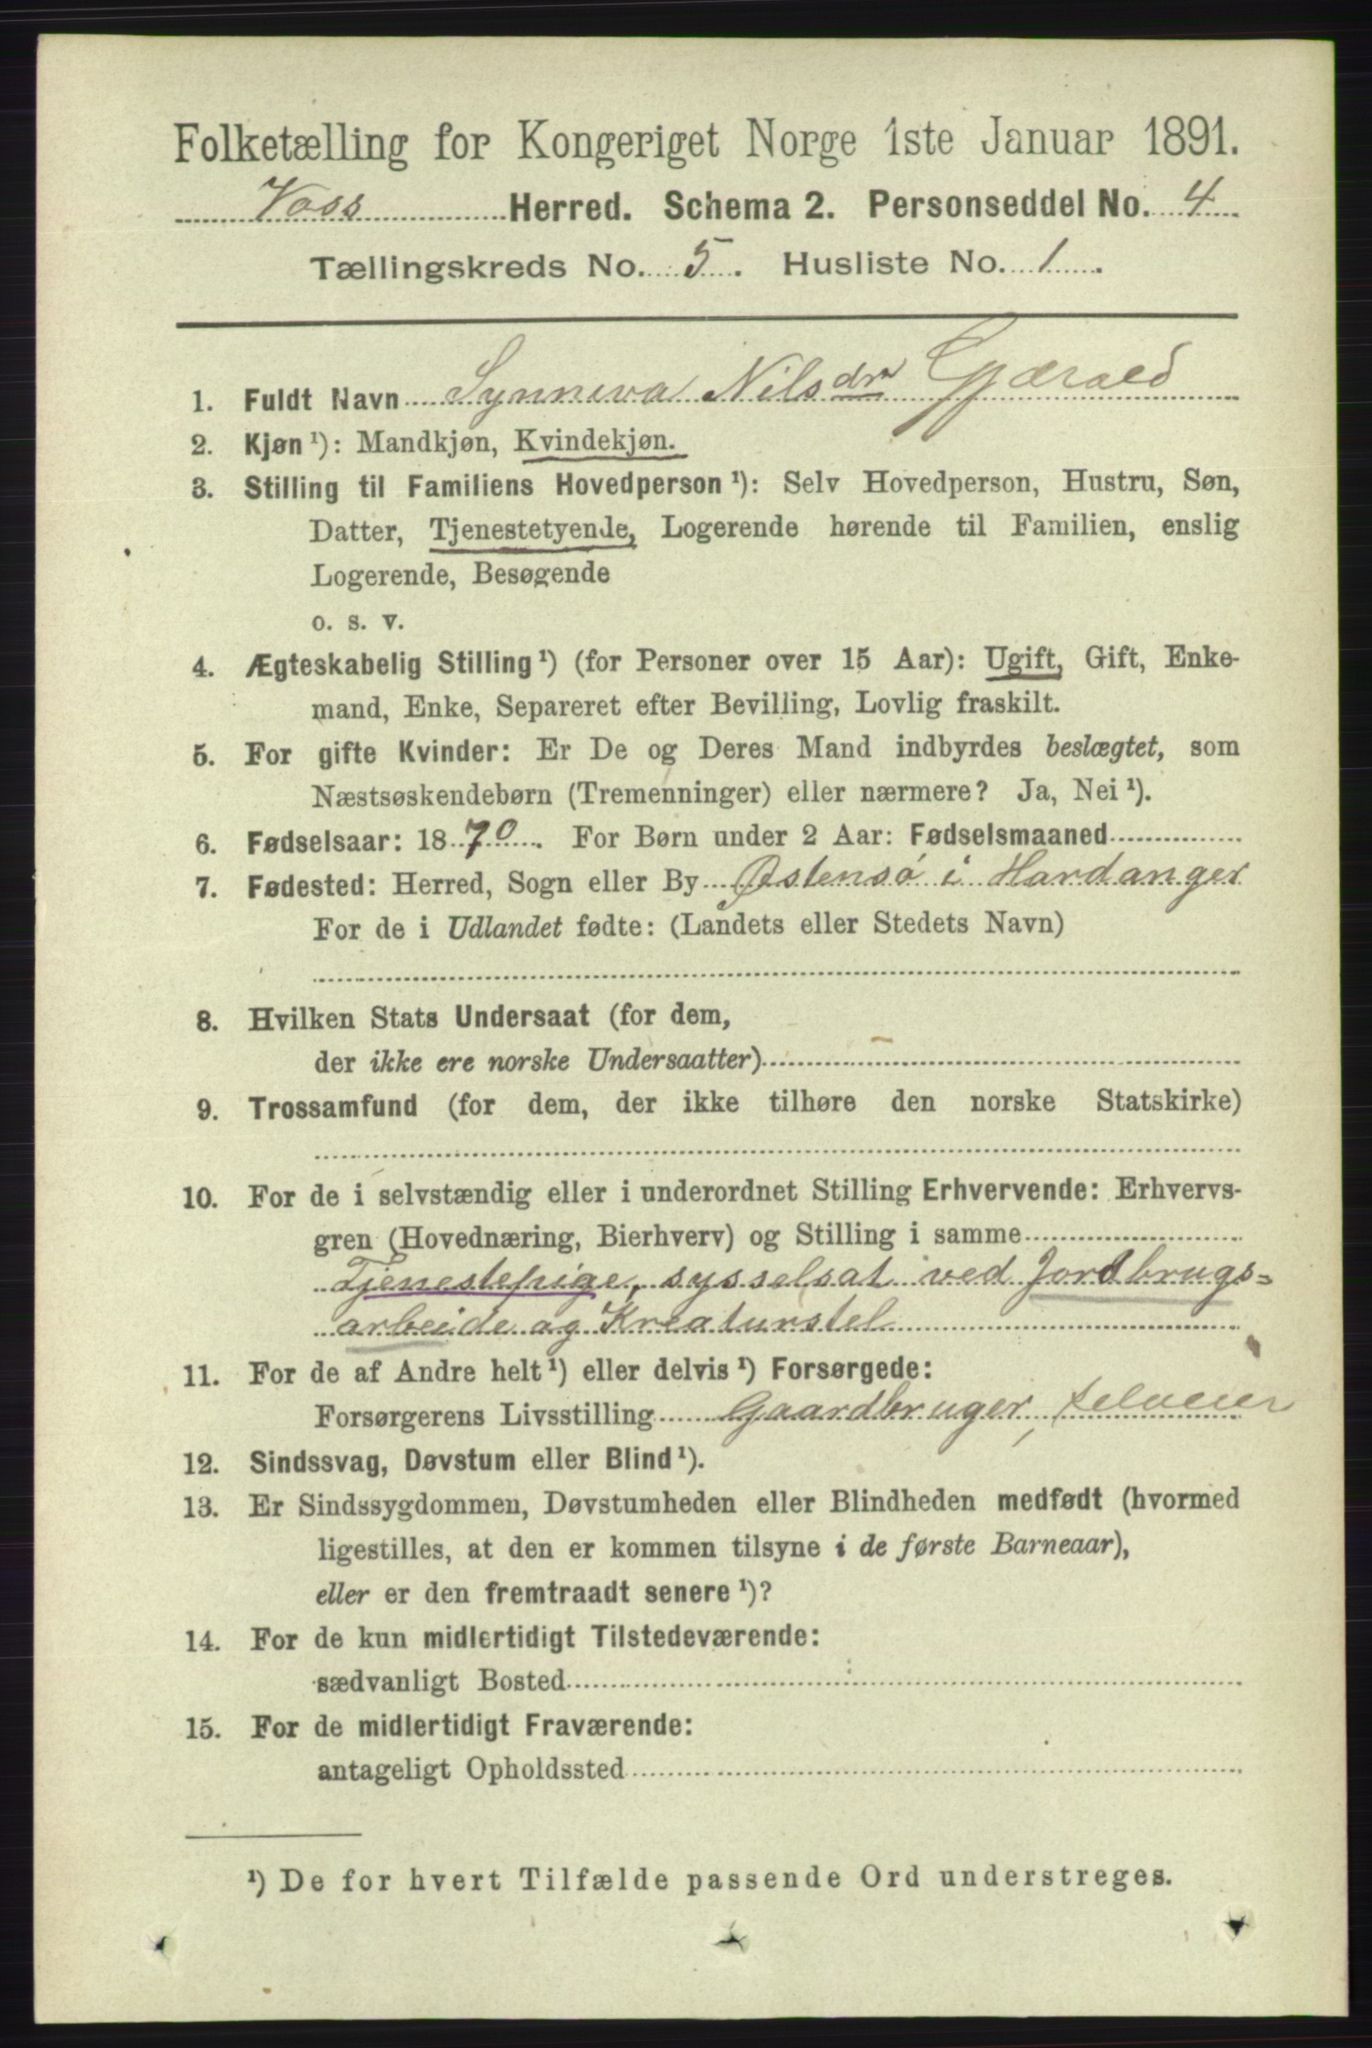 Folketælling for Kongeriget Norge 1ste Januar 1891.
Voss Herred. Schema 2. Personseddel No. 4
Tællingskreds No. 5. Husliste No. 1.
1. Fuldt Navn Synneva Nilsdr Gjærald
2. Kjøn¹): Mandkjøn, Kvindekjøn.
3. Stilling til Familiens Hovedperson¹): Selv Hovedperson, Hustru, Søn,
Datter, Tjenestetyende, Logerende hørende til Familien, enslig
Logerende, Besøgende
o. s. v.
4. Ægteskabelig Stilling¹) (for Personer over 15 Aar): Ugift, Gift, Enke-
mand, Enke, Separeret efter Bevilling, Lovlig fraskilt.
5. For gifte Kvinder: Er De og Deres Mand indbyrdes beslægtet, som
Næstsøskendebørn (Tremenninger) eller nærmere? Ja, Nei¹).
6. Fødselsaar: 1870. For Børn under 2 Aar: Fødselsmaaned
7. Fødested: Herred, Sogn eller By Østensø i Hardanger
For de i Udlandet fødte: (Landets eller Stedets Navn)
8. Hvilken Stats Undersaat (for dem,
der ikke ere norske Undersaatter)
9. Trossamfund (for dem, der ikke tilhøre den norske Statskirke)
10. For de i selvstændig eller i underordnet Stilling Erhvervende: Erhvervs-
gren (Hovednæring, Bierhverv) og Stilling i samme
Tjenestepige, sysselsat ved Jordbrugs=
arbeide og Kreaturstel
11. For de af Andre helt¹) eller delvis¹) Forsørgede:
Forsørgerens Livsstilling Gaardbruger, selveier
12. Sindssvag, Døvstum eller Blind¹).
13. Er Sindssygdommen, Døvstumheden eller Blindheden medfødt (hvormed
ligestilles, at den er kommen tilsyne i de første Barneaar),
eller er den fremtraadt senere¹)?
14. For de kun midlertidigt Tilstedeværende:
sædvanligt Bosted
15. For de midlertidigt Fraværende:
antageligt Opholdssted
¹) De for hvert Tilfælde passende Ord understreges.